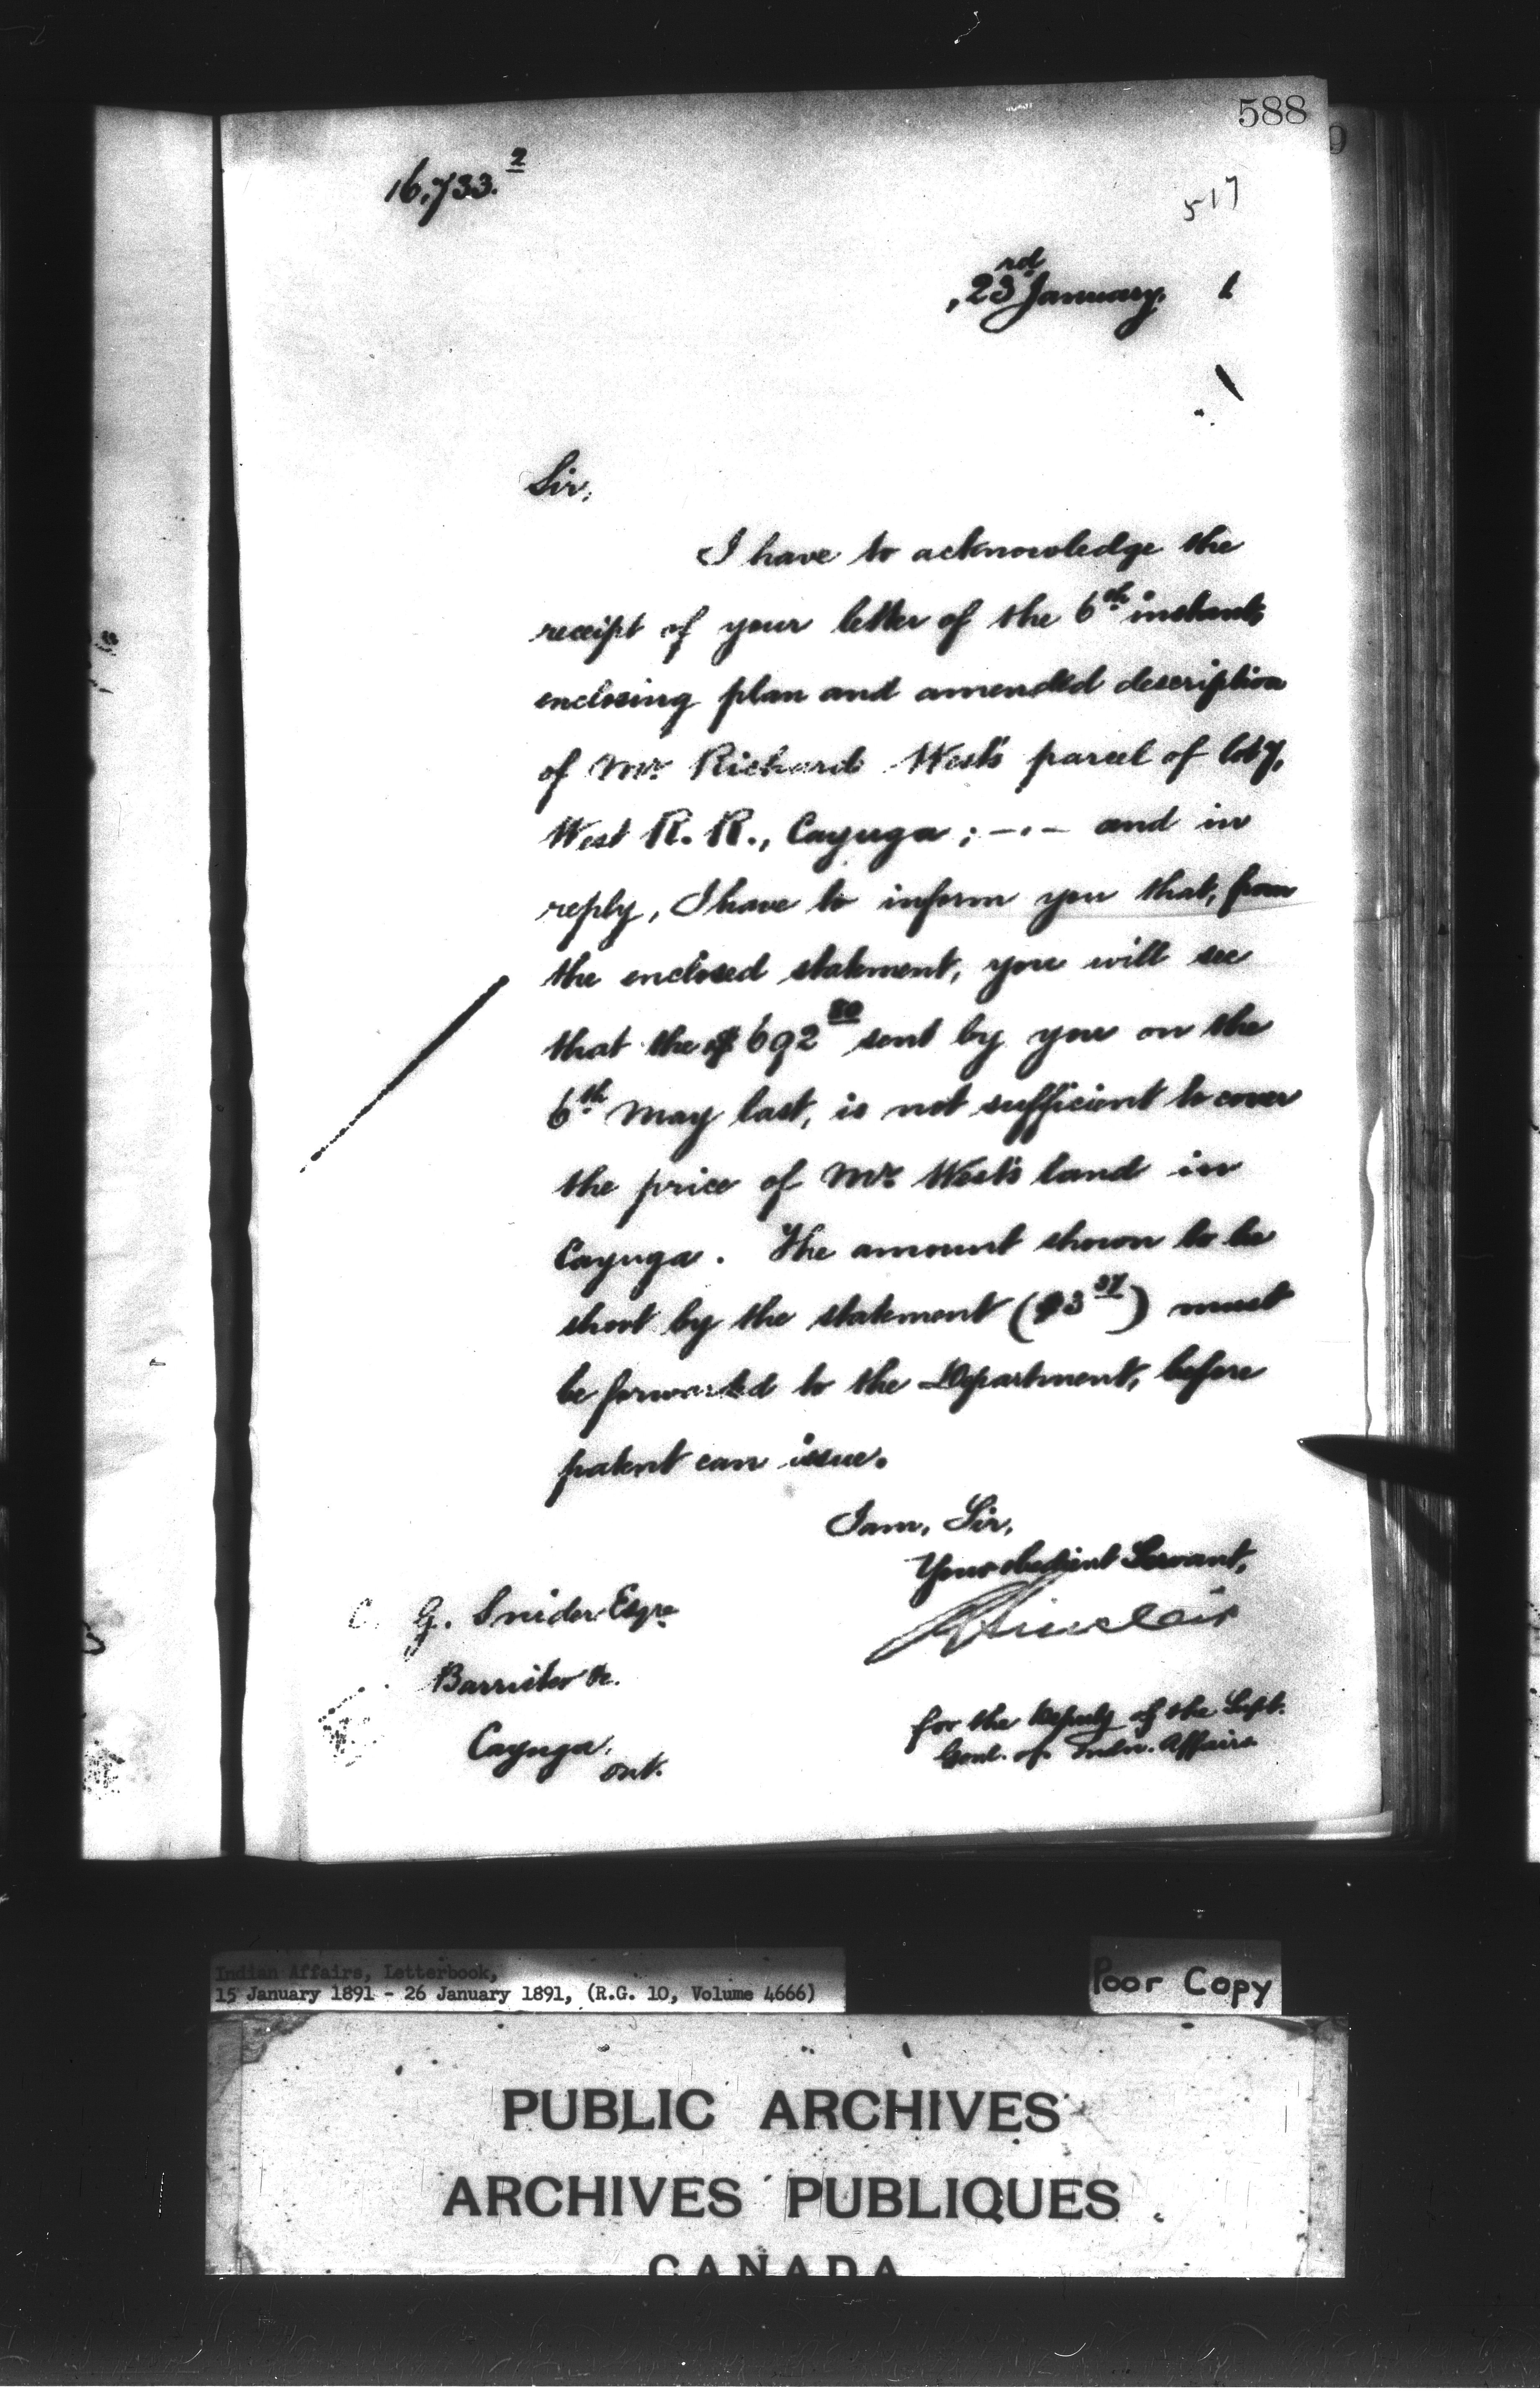 588
16,733.2
517
23rd January. 1
Sir,
I have to acknowledge the
receipt of your letter of the 6th instant,
enclosing plan and amended description
of Mr. Richard West's parcel of lot 7,
West R. R., Cayuga ; —.— and in
reply, I have to inform you that, from
the enclosed statement, you will see
that the $692 50 sent by you on the
6th May last, is not sufficient to cover
the price of Mr. West's land in
Cayuga. The amount shown to be
short by the statement ($3 37) must
be forwarded to the Department, before
patent can issue.
I am, Sir,
Your obedient Servant,
Sinclair
C. G. Snider Esqre
Barrister &c.
Cayuga,
Ont.
for the Deputy of the Supt.
Genl. of Indn. Affairs
Indian Affairs, Letterbook,
15 January 1891 - 26 January 1891, (R.G. 10, Volume 4666)
Poor Copy
PUBLIC ARCHIVES
ARCHIVES PUBLIQUES
CANADA